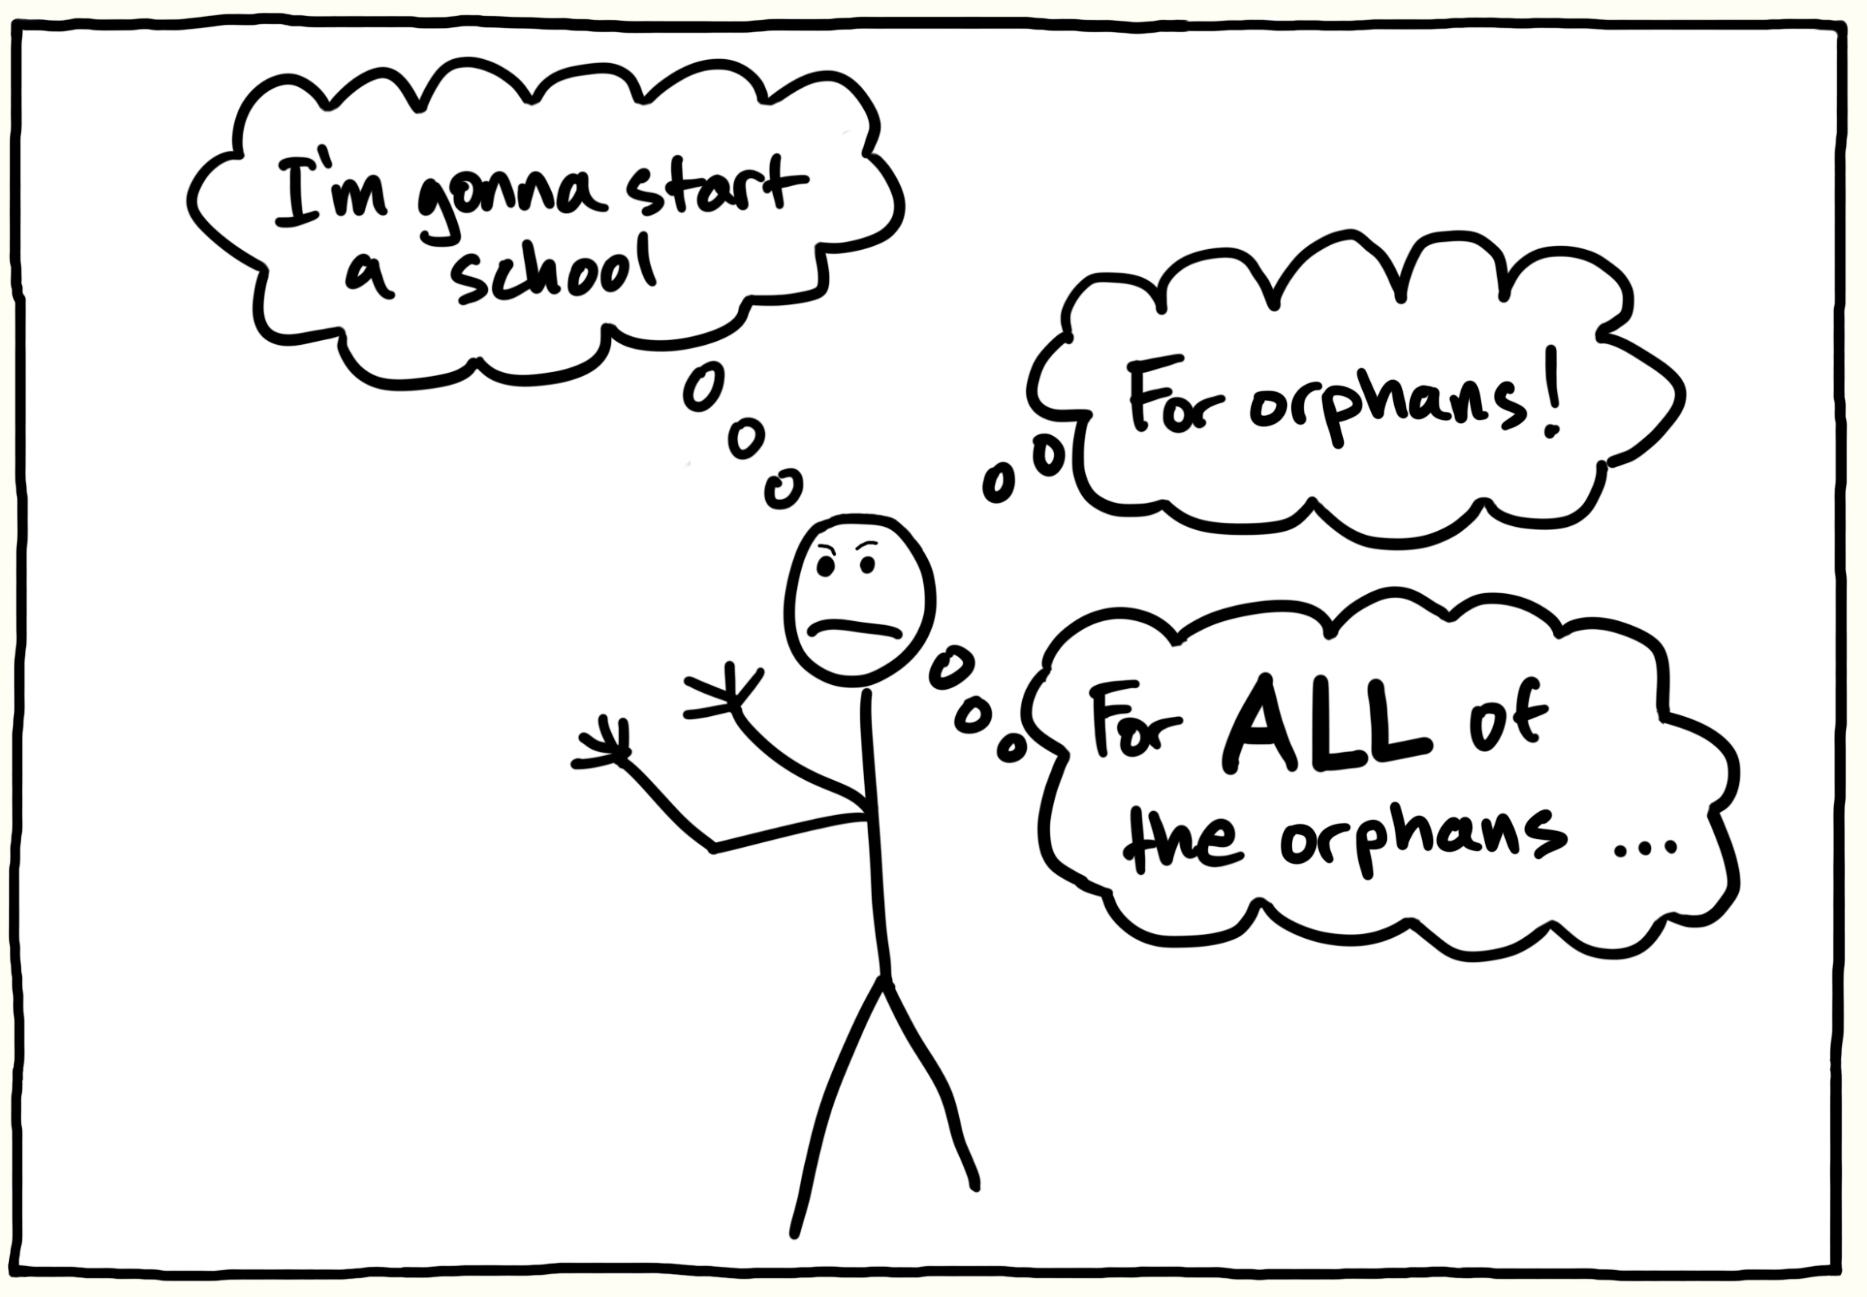 I'm gonna start
a school
For orphans!
For ALL of
the orphans ...